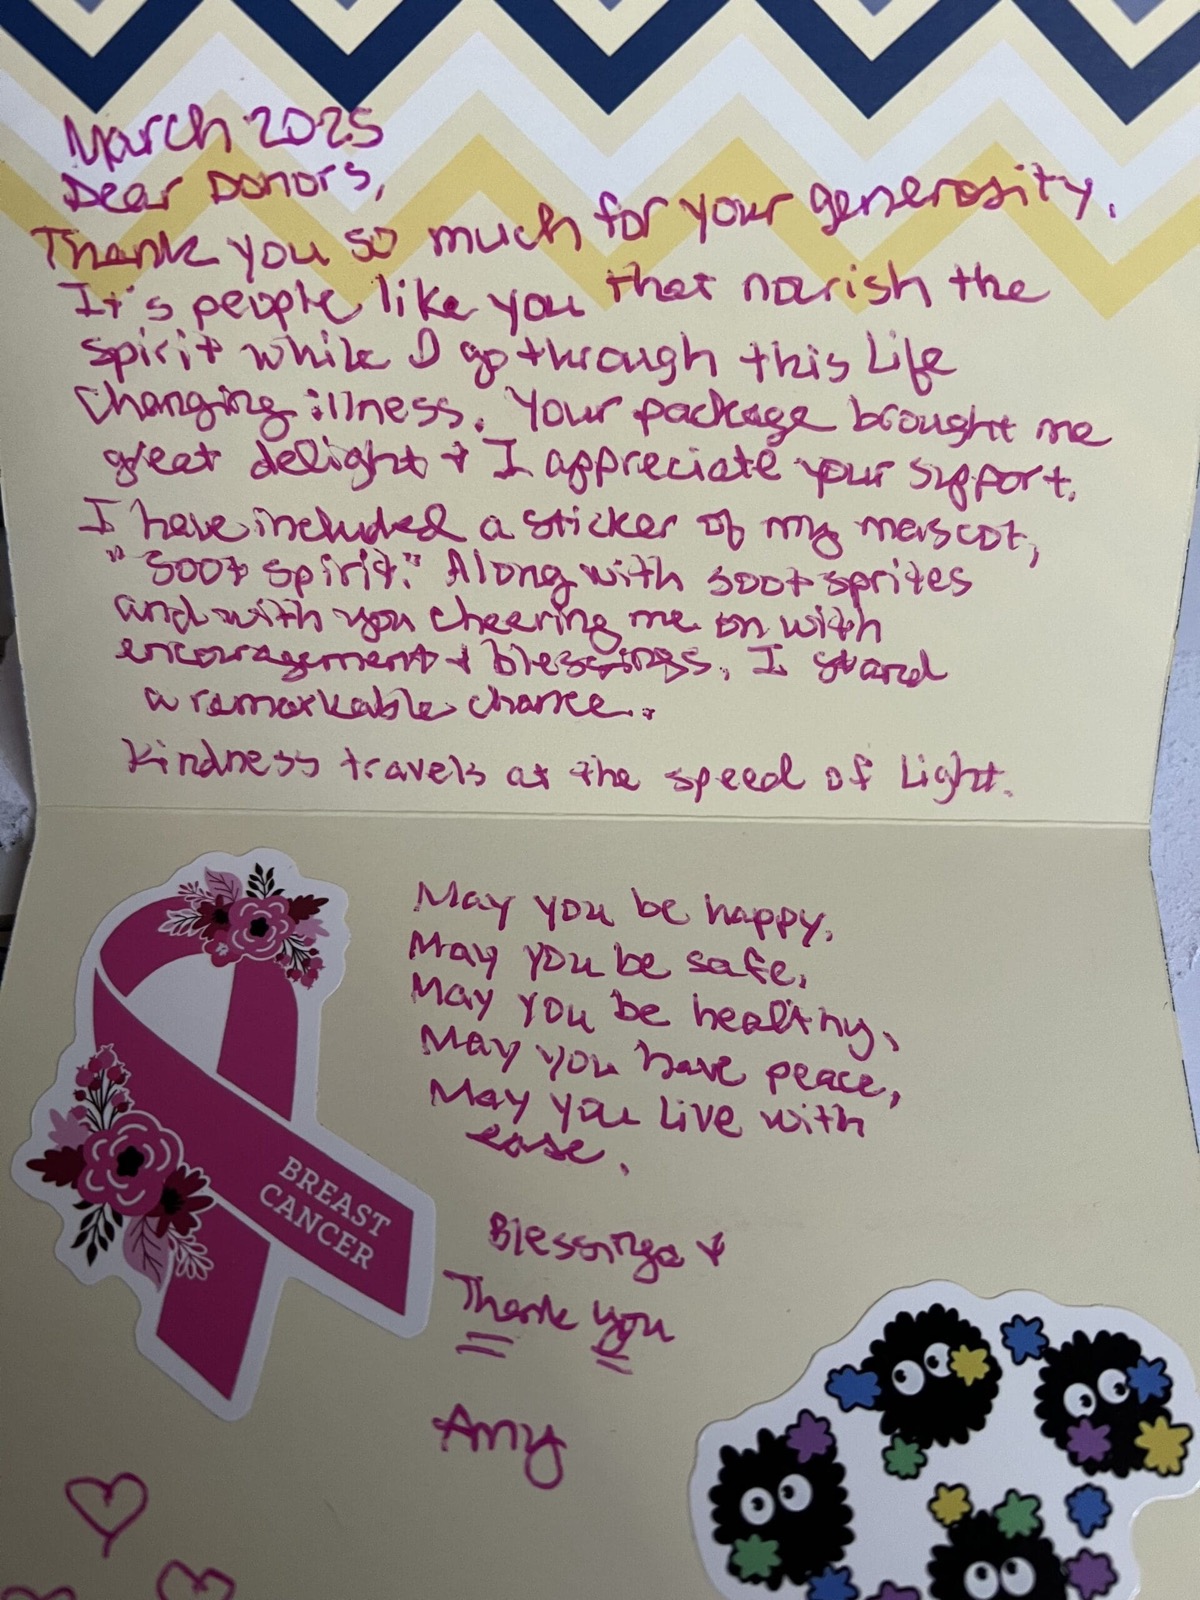 March 2025
Dear Donors,
Thank you so much for your generosity.
It's people like you that nourish the
spirit while I go through this Life
changing illness. Your package brought me
great delight + I appreciate your support.
I have included a sticker of my mascot,
"Soot spirit." Along with soot sprites
and with you cheering me on with
encouragement + blessings, I stand
a remarkable chance.
Kindness travels at the speed of Light.
May you be happy,
May you be safe,
May you be healthy,
May you have peace,
May you Live with
ease.
BREAST
CANCER
Blessings +
Thank you
Amy